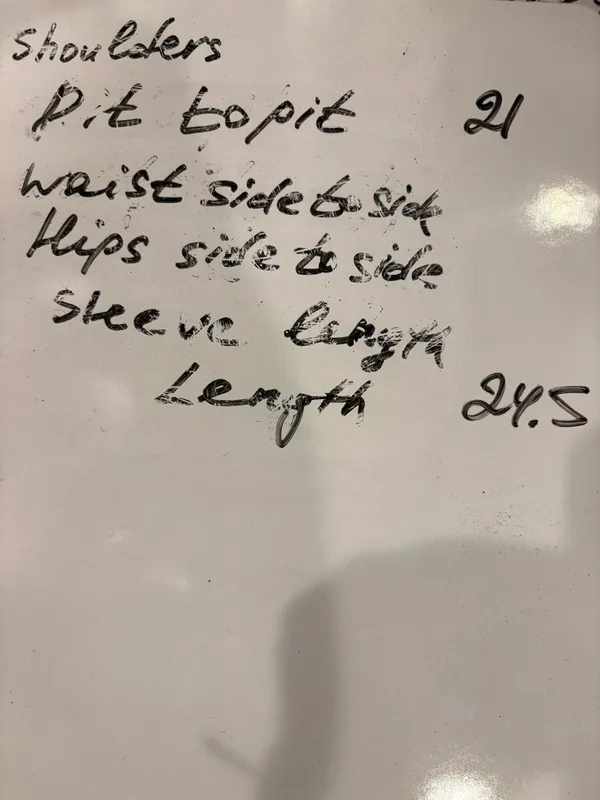 Shoulders
Pit to pit 21
waist side to side
Hips side to side
Sleeve length
Length 24.5